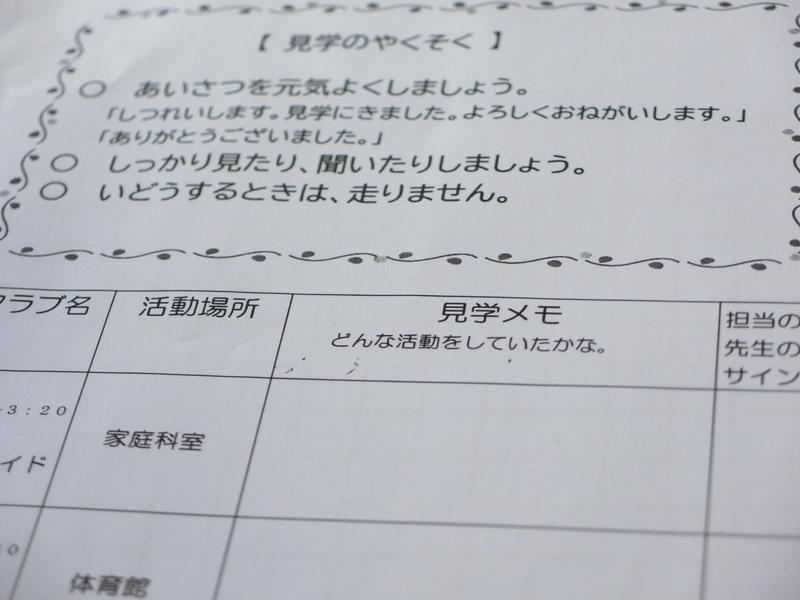 【 見学のやくそく 】
○ あいさつを元気よくしましょう。
「しつれいします。見学にきました。よろしくおねがいします。」
「ありがとうございました。」
○ しっかり見たり、聞いたりしましょう。
○ いどうするときは、走りません。
クラブ名 活動場所 見学メモ 担当の
どんな活動をしていたかな。 先生の
サイン
3:20
家庭科室
イド
体育館